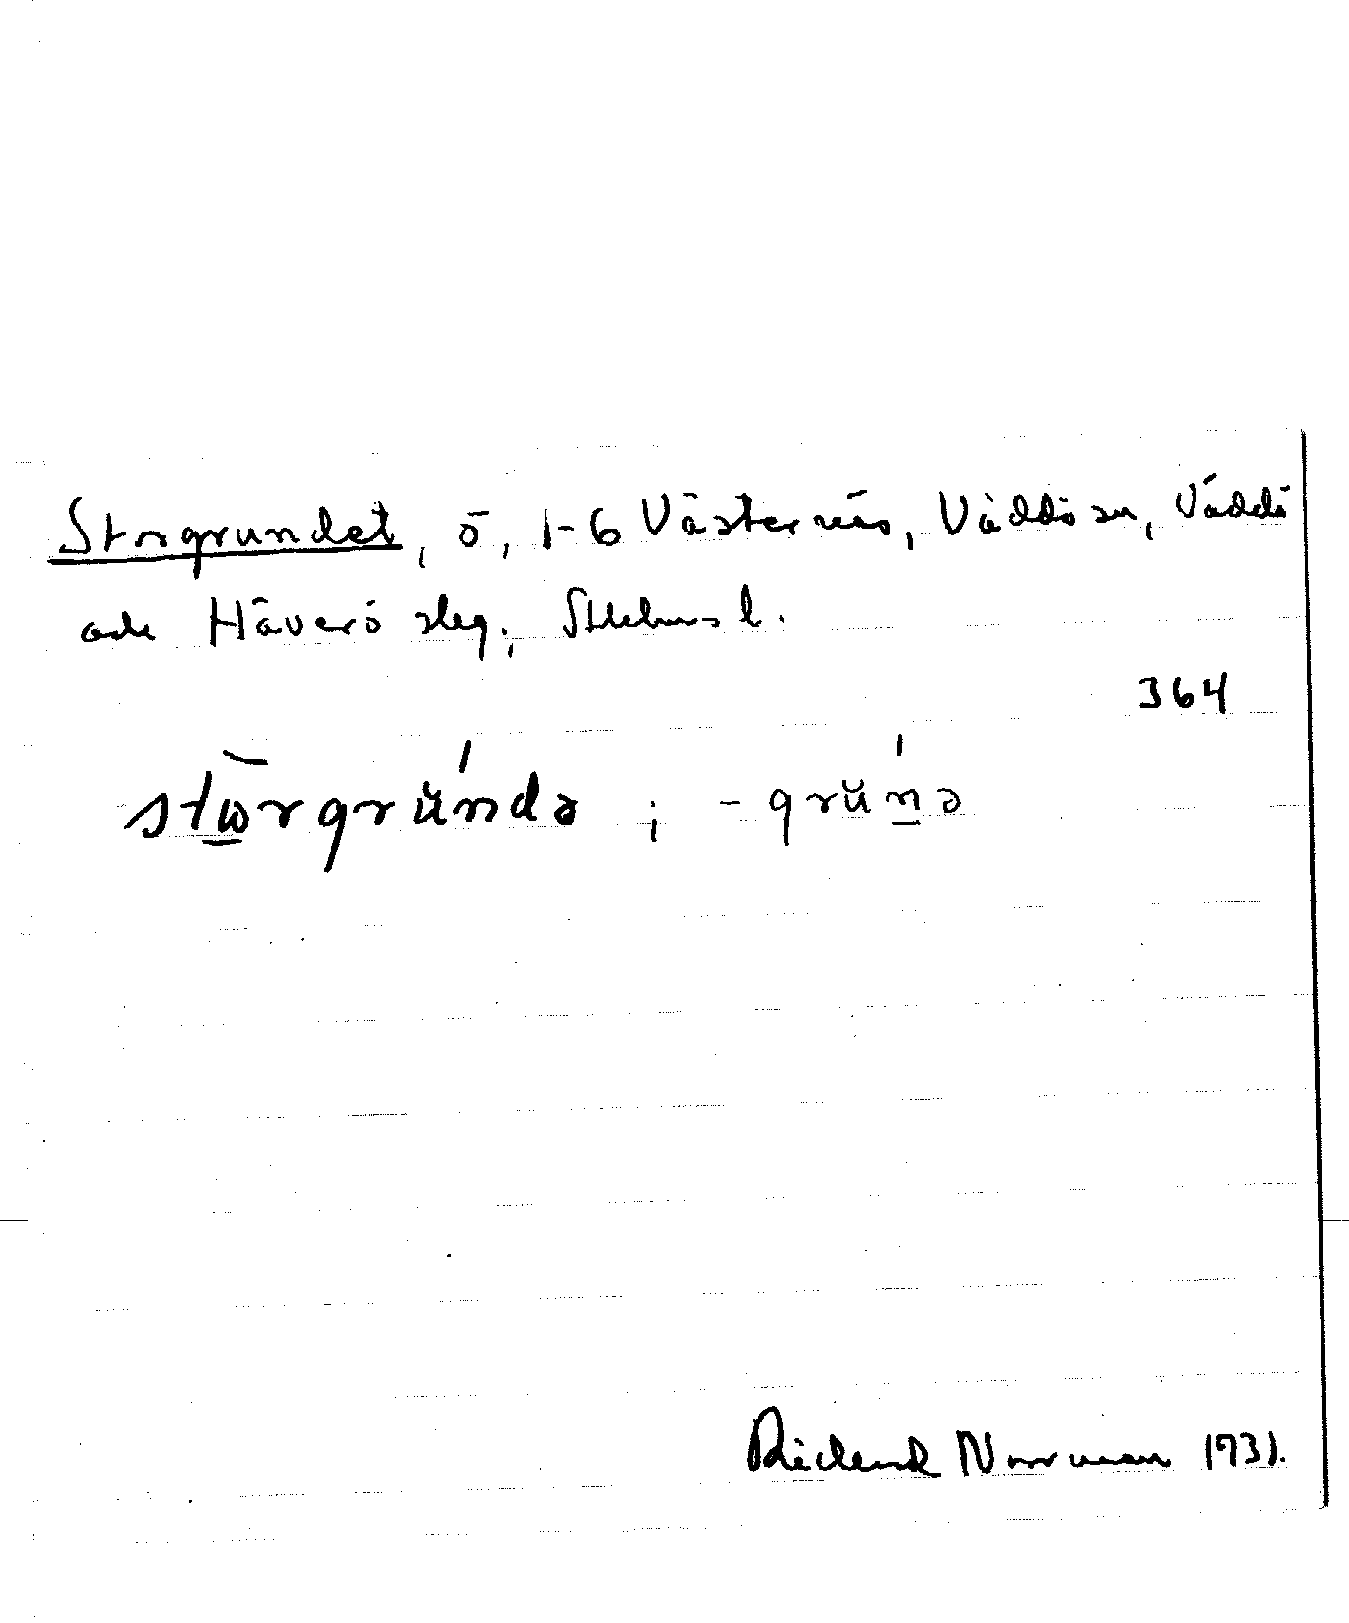 Storgrundet, ö, 1-6 Västernäs, Väddö sn, Väddö
och Häverö skeg, Sthlms l.
364
stωrgrúndə ; -grúnə
Rickard Norrman 1931.